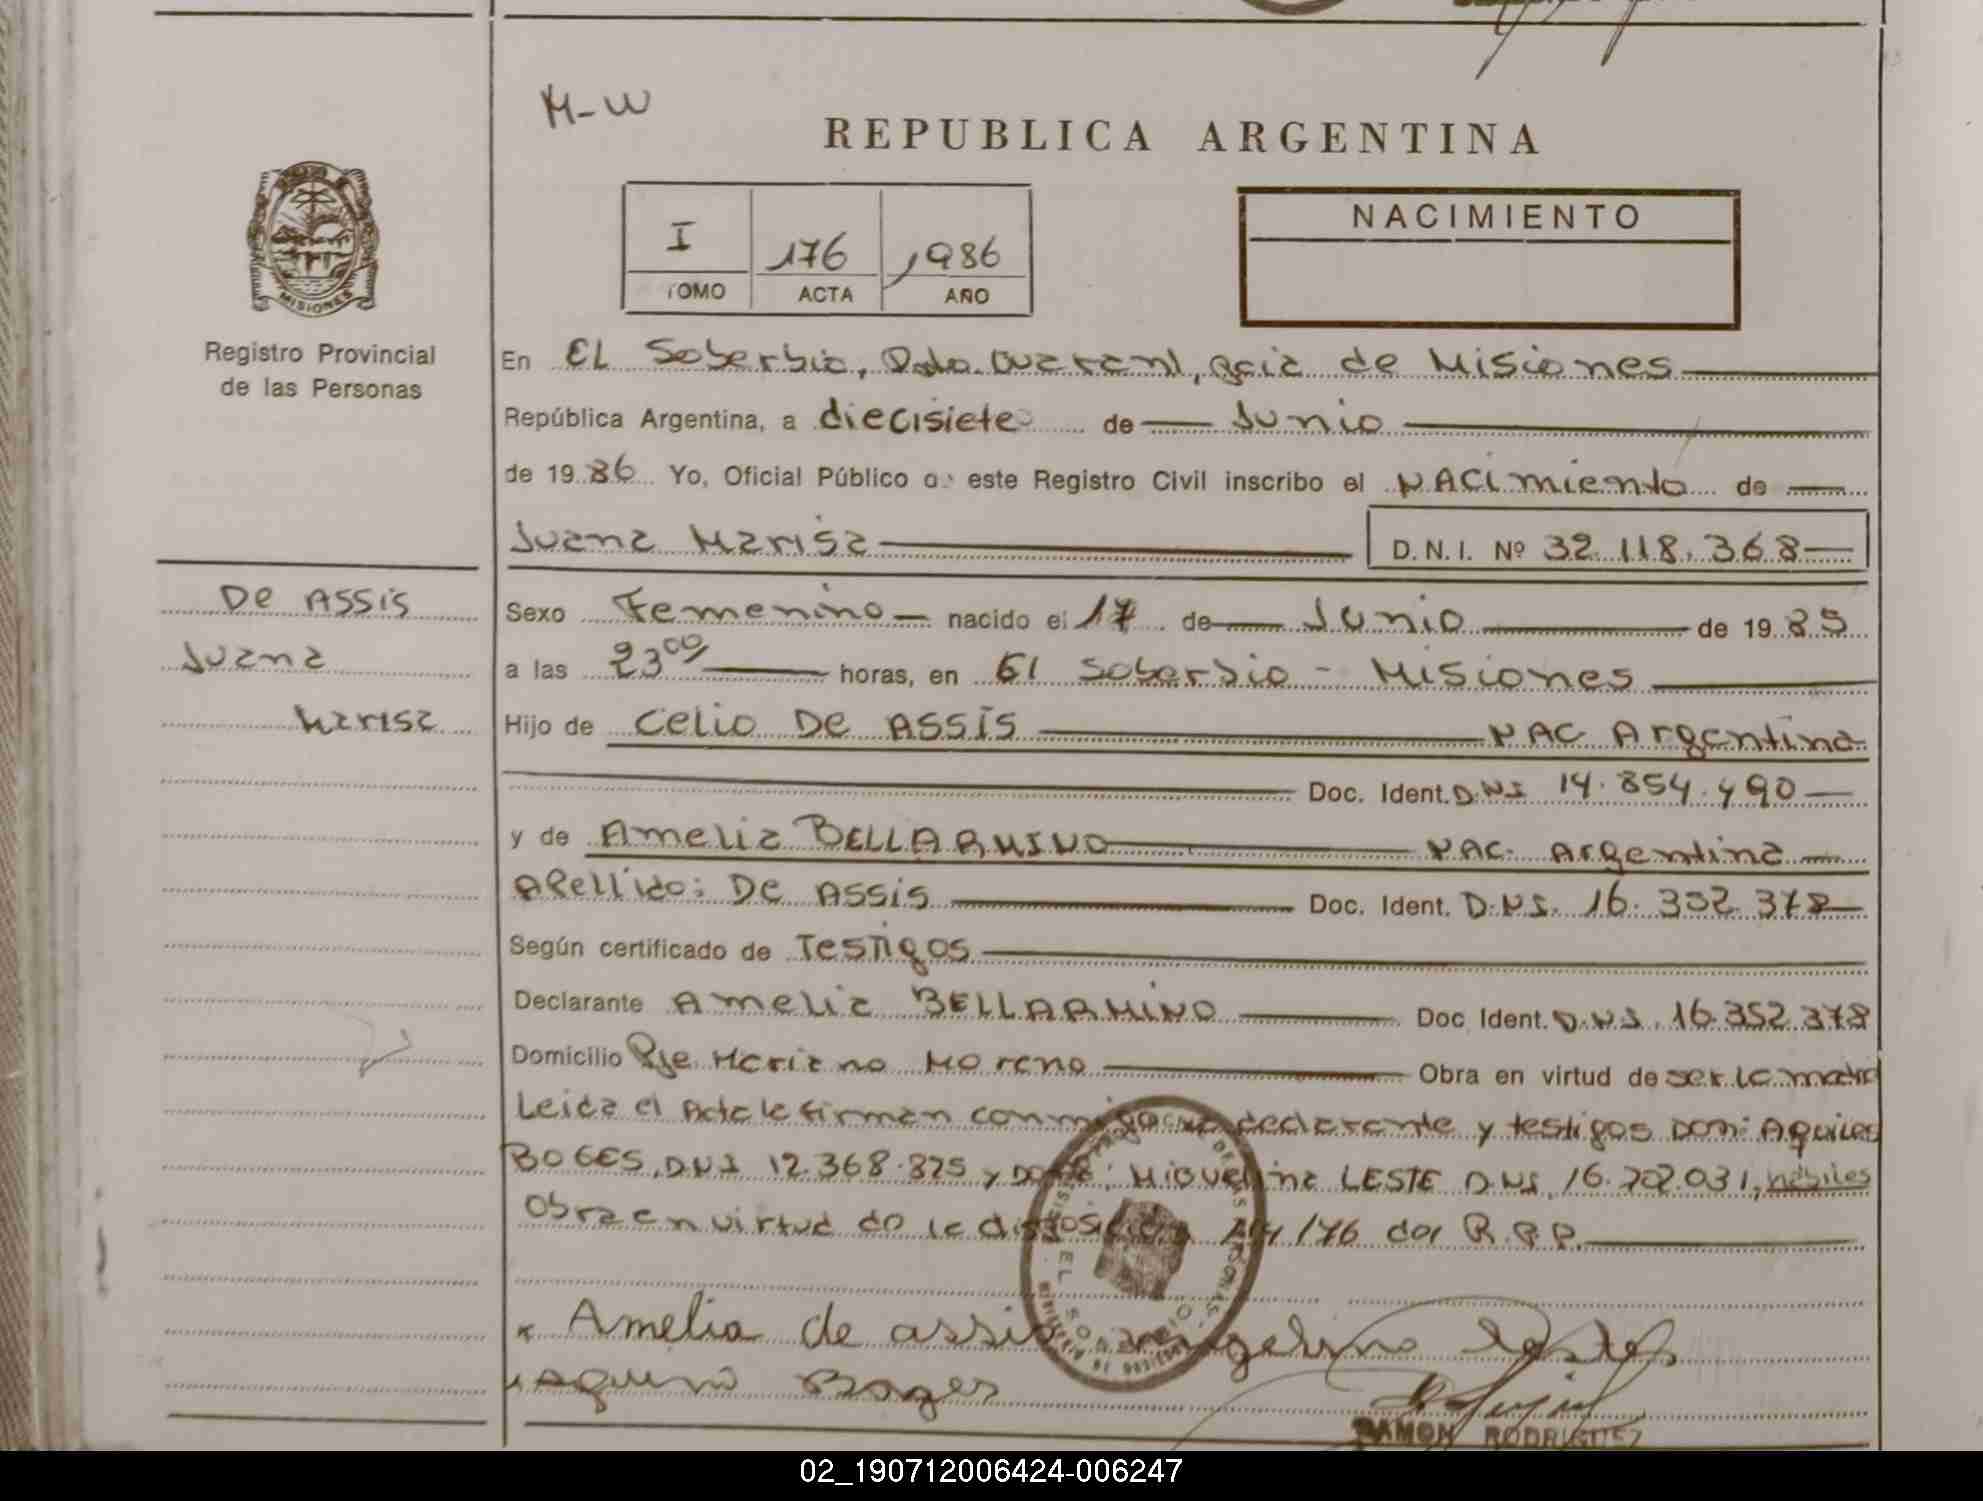 M-W
REPUBLICA ARGENTINA
I 176 1986
TOMO ACTA AÑO
NACIMIENTO
MISIONES
Registro Provincial
de las Personas
En EL Soberbio, Dpto. Guaraní, Pcia de Misiones
República Argentina, a diecisiete de Junio
de 1986 Yo, Oficial Público de este Registro Civil inscribo el NACimiento de
Juana Marisa D.N.I. Nº 32.118.368
De Assis
Juana
Marisa
Sexo Femenino nacido el 17 de Junio de 1985
a las 23 00 horas, en El Soberbio - Misiones
Hijo de Celio De Assis NAC Argentina
Doc. Ident. DNI 14.854.490
y de Amelia BELLARMINO NAC. Argentina
Apellido: De Assis Doc. Ident. D.N.I. 16.352.378
Según certificado de Testigos
Declarante Amelia BELLARMINO Doc Ident. D.N.I. 16.352.378
Domicilio Pje Mariano Moreno Obra en virtud de ser la madre
Leida el Acta la firman conmigo declarante y testigos Don: Aquiles
BOGES, DNI 12.368.825 y Doña: Miguelina LESTE DNI. 16.202.031, habiles
Obra en virtud de la disposición /76 del R.P.P.
EL SOBERBIO
Amelia de assis
Bozes
RAMON RODRIGUEZ
02_190712006424-006247